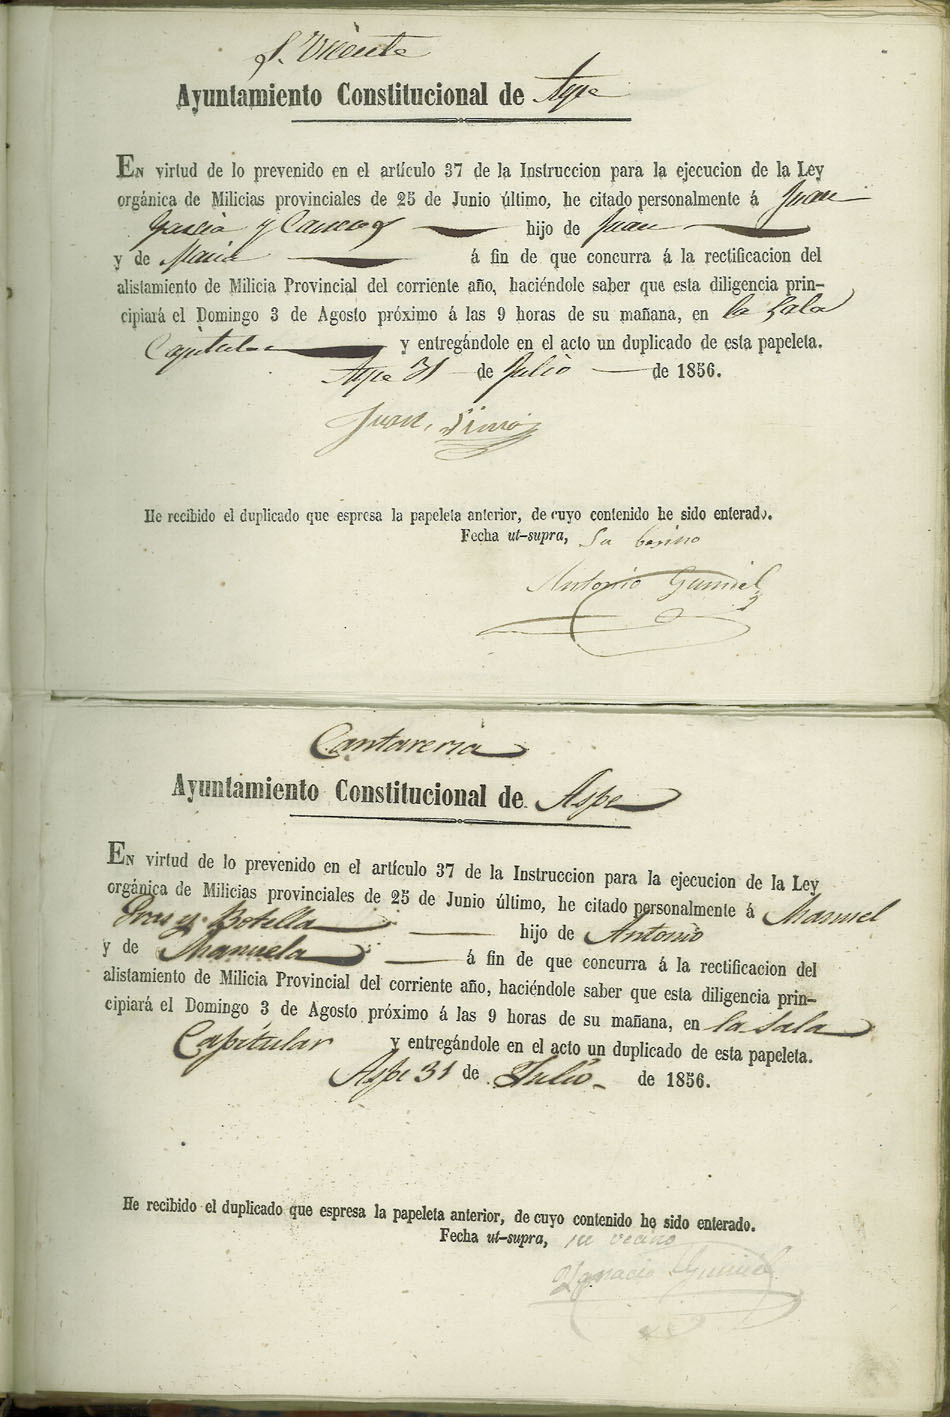 S. Vicente
Ayuntamiento Constitucional de Aspe
EN virtud de lo prevenido en el artículo 37 de la Instruccion para la ejecucion de la Ley
orgánica de Milicias provinciales de 25 de Junio último, he citado personalmente á Juan
y hijo de Juan
y de Maria á fin de que concurra á la rectificacion del
alistamiento de Milicia Provincial del corriente año, haciéndole saber que esta diligencia prin-
cipiará el Domingo 3 de Agosto próximo á las 9 horas de su mañana, en la Sala
Capitular y entregándole en el acto un duplicado de esta papeleta.
Aspe 31 de Julio de 1856.
Juan
He recibido el duplicado que espresa la papeleta anterior, de cuyo contenido he sido enterado.
Fecha ut-supra, Su besino
Antonio Gumiel
Cantareria
Ayuntamiento Constitucional de Aspe
EN virtud de lo prevenido en el artículo 37 de la Instruccion para la ejecucion de la Ley
orgánica de Milicias provinciales de 25 de Junio último, he citado personalmente á Manuel
y Botella hijo de Antonio
y de Manuela á fin de que concurra á la rectificacion del
alistamiento de Milicia Provincial del corriente año, haciéndole saber que esta diligencia prin-
cipiará el Domingo 3 de Agosto próximo á las 9 horas de su mañana, en la Sala
Capitular y entregándole en el acto un duplicado de esta papeleta.
Aspe 31 de Julio de 1856.
He recibido el duplicado que espresa la papeleta anterior, de cuyo contenido he sido enterado.
Fecha ut-supra, su vecino
Ygnacio Gumiel